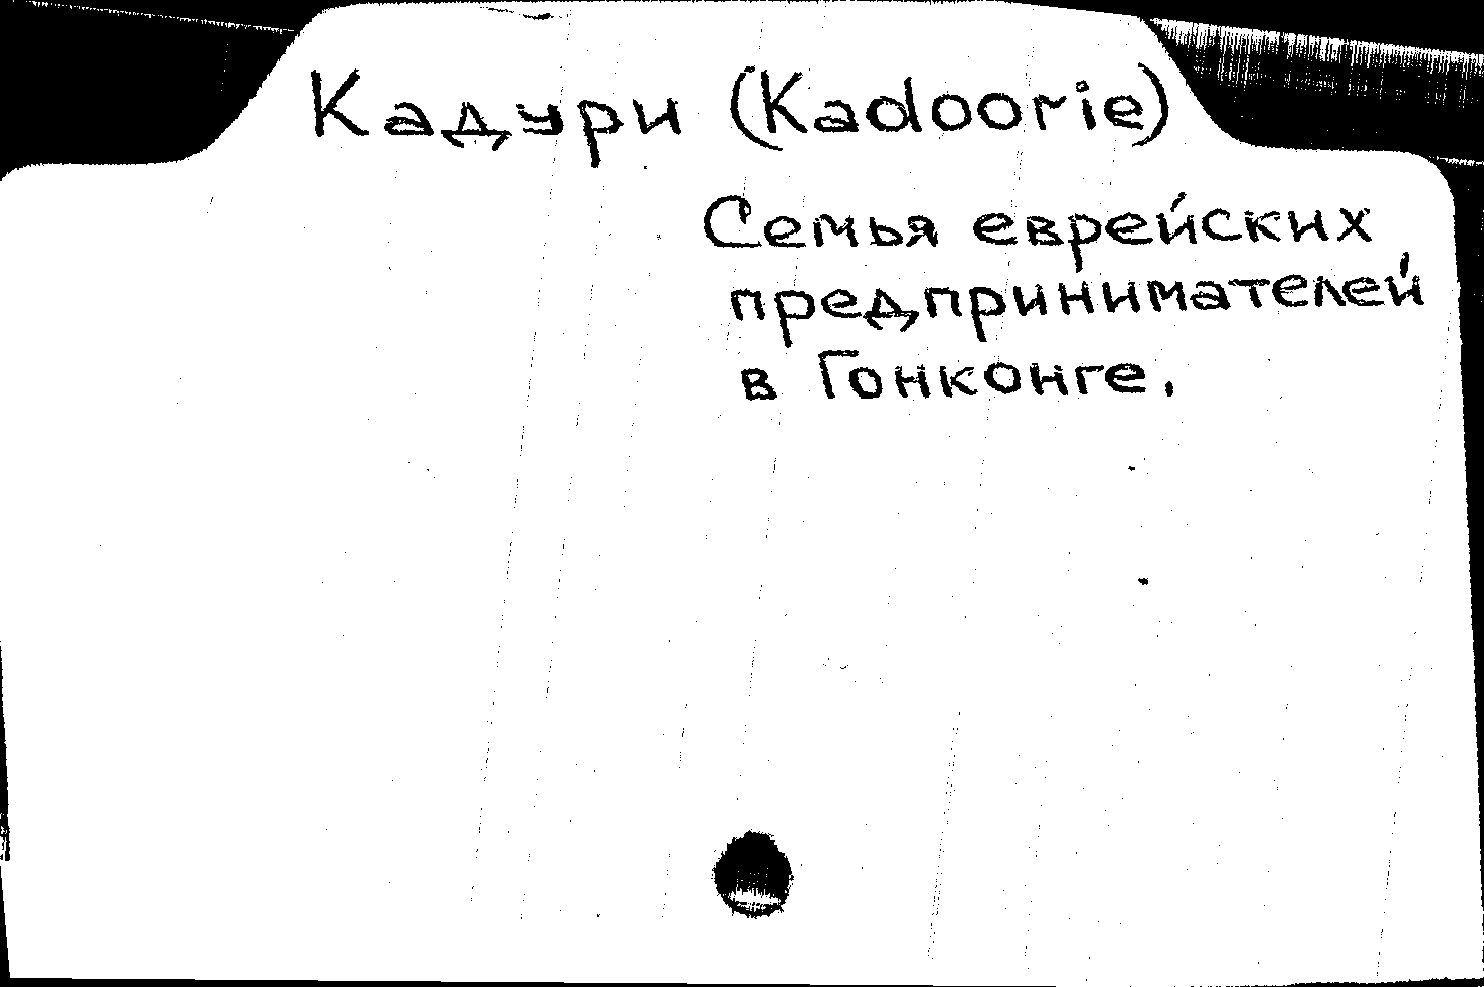 Кадури (Kadoorie)
Семья еврейских
предпринимателей
в Гонконге.